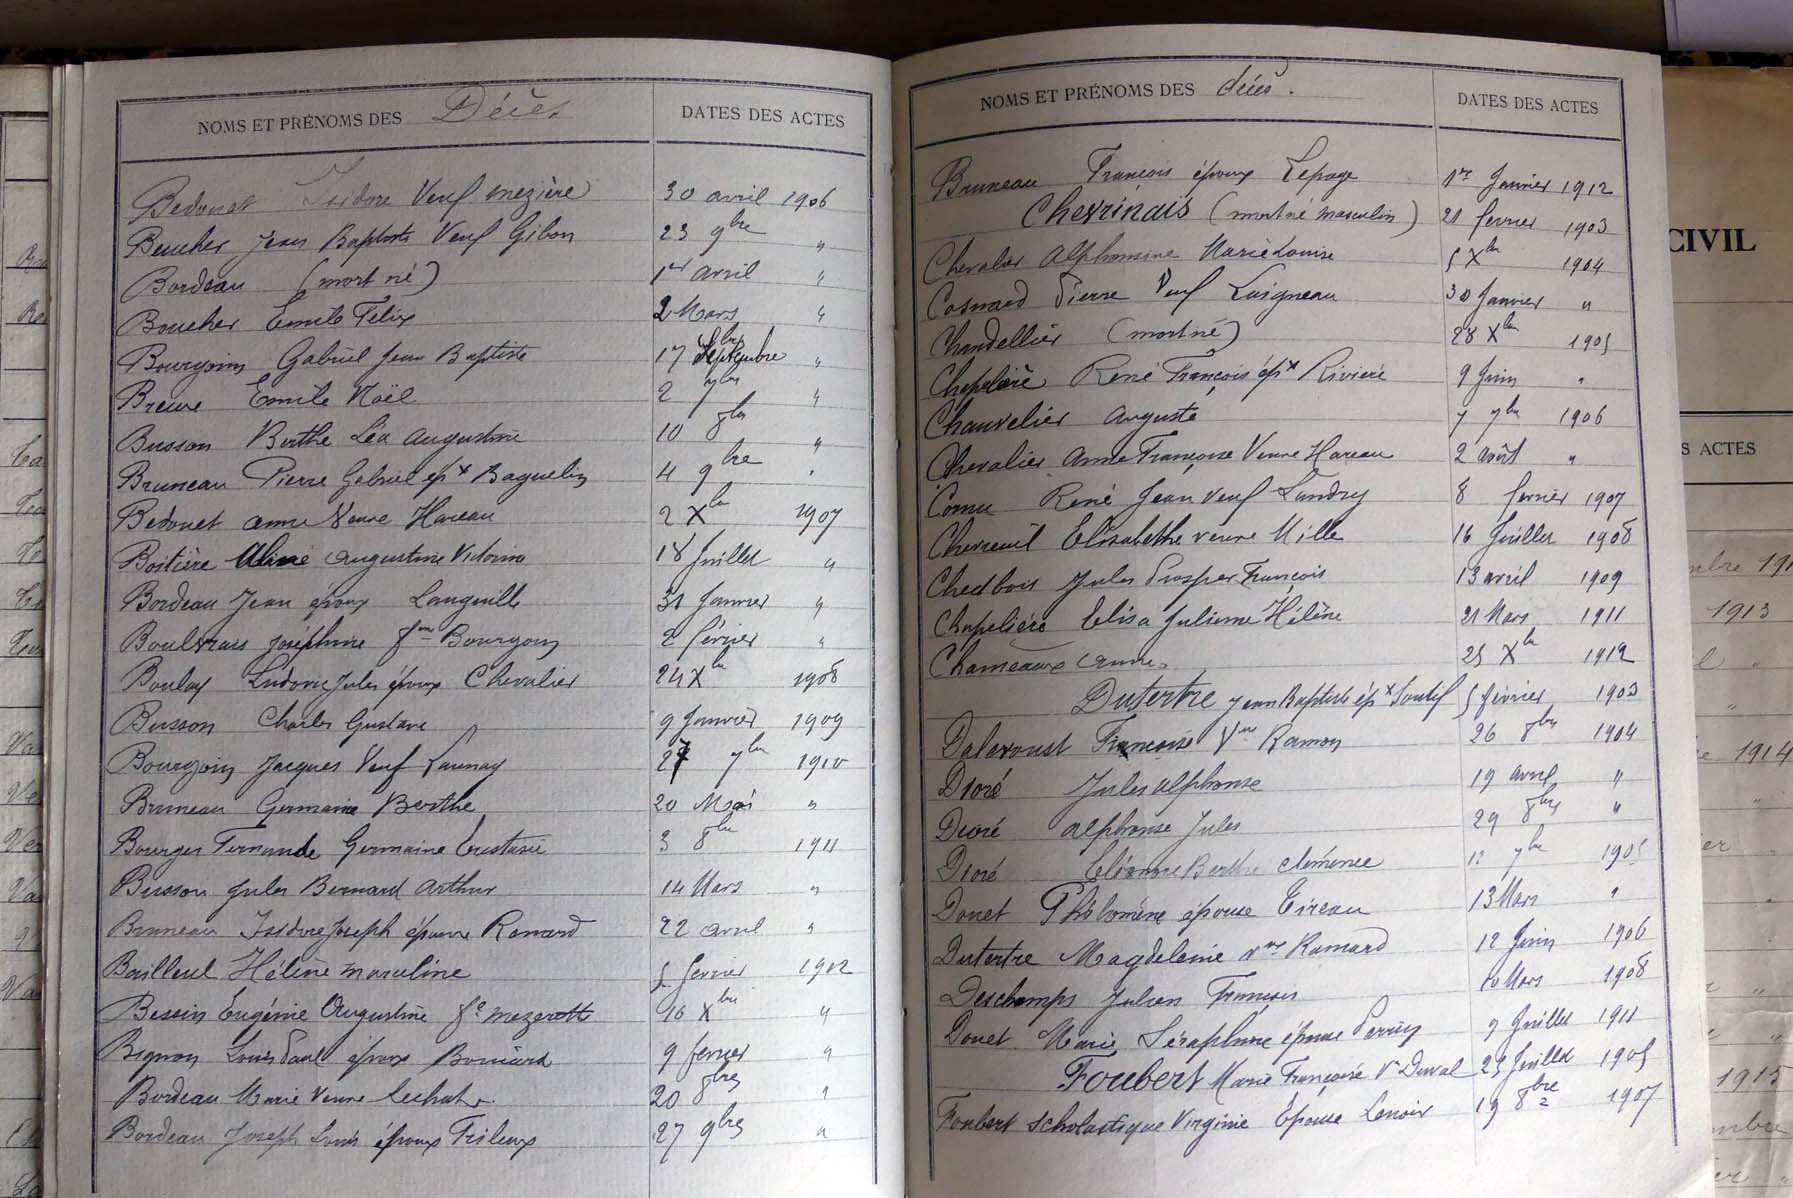 NOMS ET PRÉNOMS DES Décès
DATES DES ACTES
Bedouet Isidore Veuf mezière 30 avril 1906
Beucher Jean Baptiste Veuf Gibon 23 9bre "
Bordeau (mort né) 1er avril "
Boucher Emile Félix 2 Mars "
Bourgoin Gabriel Jean Baptiste 17 Septembre "
Breuve Emile Noël 2 7bre "
Busson Berthe Léa Augustine 10 8bre "
Bruneau Pierre Gabriel épx Baguelin 4 9bre "
Bedouet anne Veuve Hareau 2 Xbre 1907
Boitière Aliné Augustine Victorine 18 Juillet "
Bordeau Jean époux Languille 31 Janvier "
Boulvrais Joséphine fme Bourgoin 2 février "
Boulay Ludovic Jules époux Chevalier 24 Xbre 1908
Busson Charles Gustave 9 Janvier 1909
Bourgoin Jacques Veuf Launay 27 7bre 1910
Bruneau Germaine Berthe 20 Mai "
Bourges Fernande Germaine Eustasie 3 8bre 1911
Busson Jules Bernard Arthur 14 Mars "
Bruneau Isidore Joseph époux Renard 22 avril "
Bailleul Hélène marceline 5 fevrier 1912
Bessin Eugénie Augustine fe mezerette 16 Xbre "
Bignon Louis Paul époux Bouvard 9 fevrier "
Bordeau Marie Veuve Luchat 20 8bres "
Bordeau Joseph Louis époux Trileux 27 9bres "
NOMS ET PRÉNOMS DES décès.
DATES DES ACTES
Bruneau François époux Lepage 1er Janvier 1912
Chevrinais (mort né masculin) 21 fevrier 1903
Chevalier Alphonsine Marie Louise 5 Xbre 1904
Cosnard Pierre Veuf Luigneau 30 Janvier "
Chandellier (mort né) 28 Xbre 1905
Chapelière René François épx Rivière 9 Juin "
Chauvelier Auguste 7 7bre 1906
Chevalier Anne Françoise Veuve Hareau 2 août "
Cornu René Jean Veuf Landry 8 fevrier 1907
Chevreuil Elisabethe veuve Mille 16 Juillet 1908
Chedbois Jules Prosper François 13 avril 1909
Chapelière Elisa Julienne Hélène 21 Mars 1911
Chameaux Anne 25 Xbre 1912
Dutertre Jean Baptiste épx Soutif 5 février 1903
Dalevoust Françoise Vve Ramon 26 8bre 1904
Dioré Jules alphonse 19 avril "
Dioré alphonse Jules 29 8bre "
Dioré Eléonore Berthe clémence 12 7bre 1905
Douet Philomène épouse Tireau 13 Mars "
Dutertre Magdeleine vve Ramard 12 Juin 1906
Deschamps Julien François 10 Mars 1908
Douet Marie Séraphine épouse Perrin 9 Juillet 1911
Foubert Marie Françoise V Duval 25 Juillet 1905
Foubert Scholastique Virginie Épouse Lenoir 19 8bre 1907
CIVIL
S ACTES
1913
1914
1915